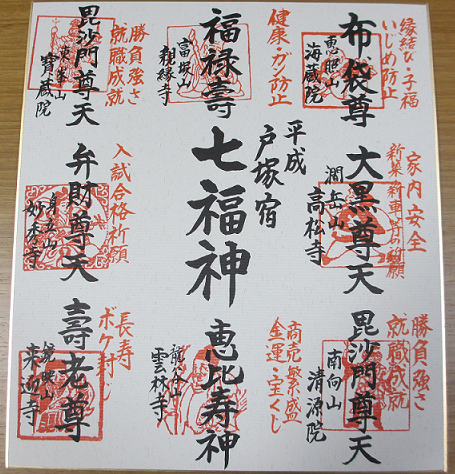 縁結び・子福
いじめ防止
布袋尊
海蔵院
健康・ガン防止
福禄壽
富塚山
親縁寺
勝負強さ
就職成就
毘沙門尊天
東峯山
寶蔵院
家内安全
新築・新車等の祈願
大黒尊天
潤岳山
高松寺
平成
戸塚宿
七福神
入試合格祈願
弁財尊天
妙秀寺
勝負強さ
就職成就
毘沙門尊天
南向山
清源院
商売繁盛
金運・宝くじ
恵比寿神
雲林寺
長寿
ボケ封じ
壽老尊
来迎寺